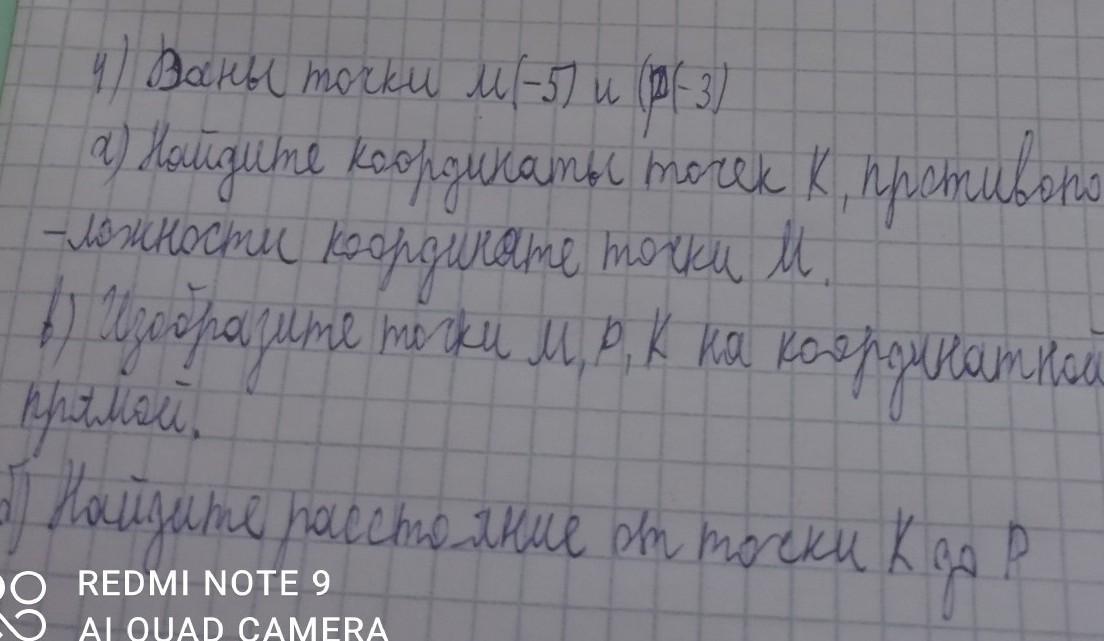 4) Даны точки М(-5) и (Р(-3)
а) Найдите координаты точек К, противопо
-ложности координате точки М.
в) Изобразите точки М, Р, К на координатной
прямой.
б) Найдите расстояние от точки К до Р
REDMI NOTE 9
AI QUAD CAMERA